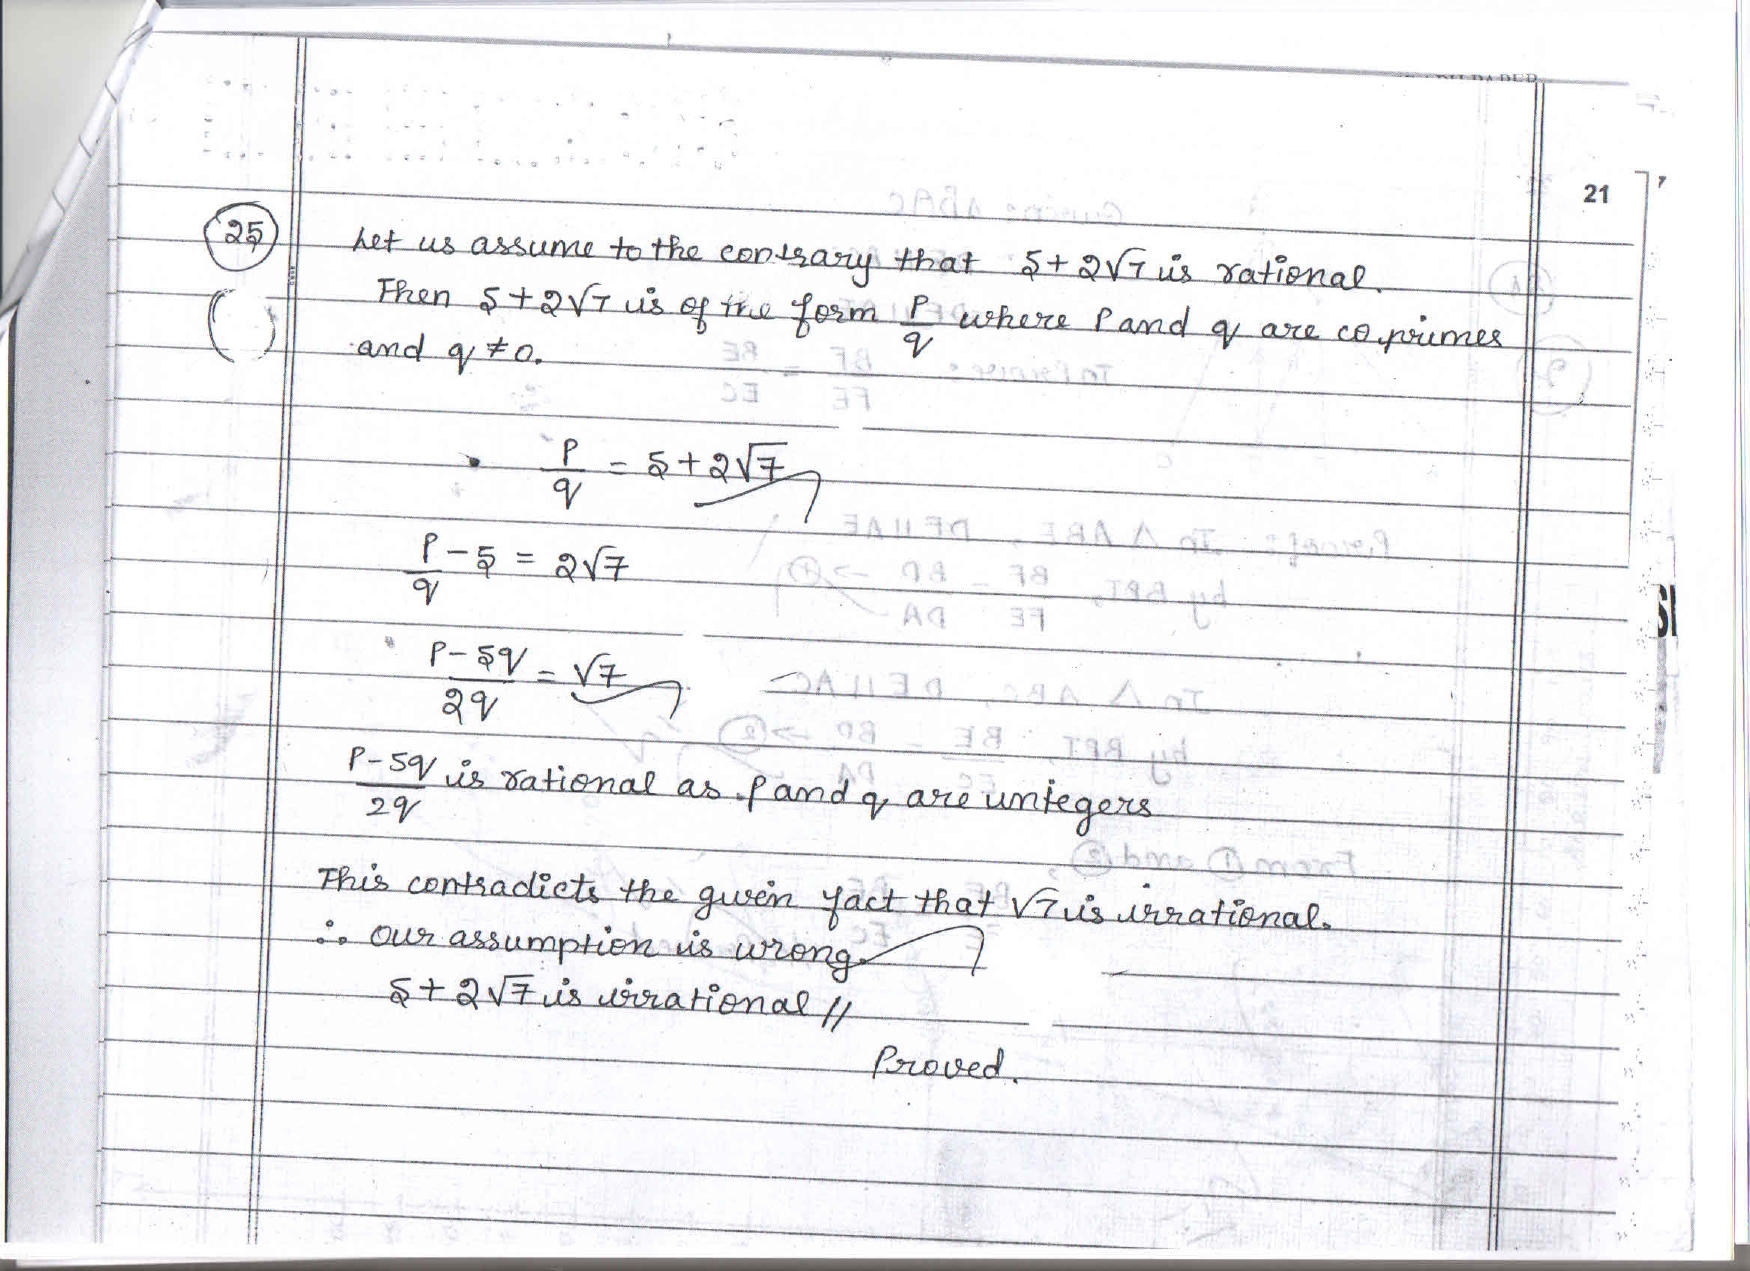 21
25
Let us assume to the contrary that 5+2√7 is rational.
Then 5+2√7 is of the form P/q where P and q are coprimes
and q ≠ 0.
P/q = 5+2√7
P/q - 5 = 2√7
P-5q/2q = √7
P-5q/2q is rational as P and q are integers
This contradicts the given fact that √7 is irrational.
∴ our assumption is wrong.
5+2√7 is irrational //
Proved.